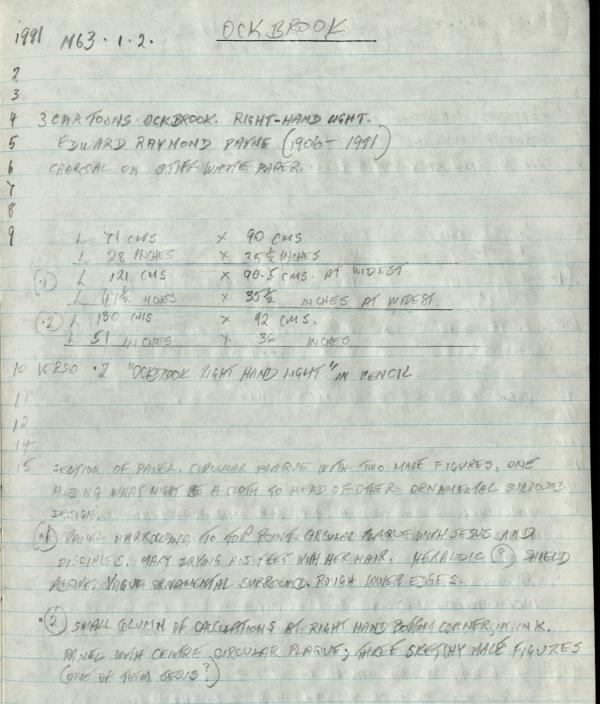 1991 M63.1.2. OCKBROOK
2
3
4 3 CARTOONS. OCKBROOK. RIGHT-HAND LIGHT.
5 EDWARD RAYMOND PAYNE (1906 - 1991)
6 CHARCOAL ON STIFF WHITE PAPER.
7
8
9 L 71 CMS X 90 CMS
L 28 INCHES X 35½ INCHES
(.1) L 121 CMS. X 90.5 CMS. AT WIDEST.
L 47½ INCHES X 35½ INCHES AT WIDEST.
(.2) L 130 CMS X 92 CMS.
L 51 INCHES X 36 INCHES
10 VERSO .2 "OCKBROOK RIGHT HAND LIGHT" IN PENCIL.
11
12
14
15 SECTION OF PANEL. CIRCULAR PLAQUE WITH TWO MALE FIGURES, ONE
WHAT MIGHT BE A CLOTH TO HEAD OF OTHER. ORNAMENTAL SURROUND
DESIGN.
(.1) PANEL NARROWING TO TOP POINT. CIRCULAR PLAQUE WITH JESUS AND
DISCIPLES. MARY DRYING HIS FEET WITH HER HAIR. HERALDIC (?) SHIELD
ABOVE. VAGUE ORNAMENTAL SURROUND. ROUGH LOWER EDGES.
.(2) SMALL COLUMN OF CALCULATIONS AT RIGHT HAND BOTTOM CORNER, IN INK.
PANEL WITH CENTRE CIRCULAR PLAQUE; THREE SKETCHY MALE FIGURES
(ONE OF THEM JESUS?)